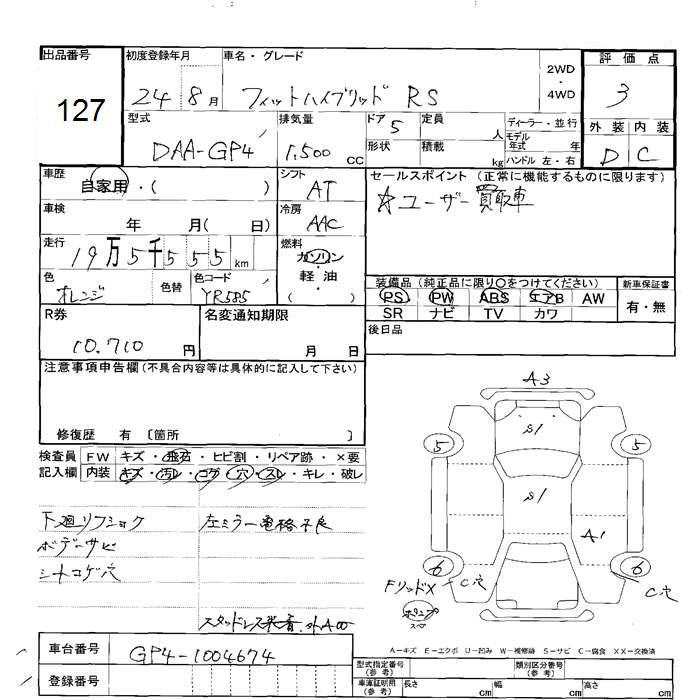 出品番号
127
初度登録年月
24年 8月
車名・グレード
フィットハイブリッド RS
2WD
・
4WD
評価点
3
型式
DAA-GP4
排気量
1,500 CC
ドア 5
定員
人
形状
積載
kg
ディーラー・並行
モデル
年式 年
ハンドル 左・右
外装 内装
D C
車歴
自家用・( )
シフト
AT
セールスポイント (正常に機能するものに限ります)
☆ユーザー買取車
車検
年 月( 日)
冷房
AAC
走行
19万5千555km
燃料
ガソリン
・
軽油
・
( )
色
オレンジ
色替
色コード
YR585
装備品 (純正品に限り○をつけてください)
PS PW ABS エアB AW
SR ナビ TV カワ
新車保証書
有・無
R券
10.710 円
名変通知期限
月 日
後日品
注意事項申告欄(不具合内容等は具体的に記入して下さい)
修復歴 有 〔箇所 〕
検査員
記入欄
FW キズ・飛石・ヒビ割・リペア跡・×要
内装 キズ・汚レ・コゲ・穴・スレ・キレ・破レ
下廻リフショク
ボデーサビ
シートコゲ穴
左ミラー電格不良
スタッドレス装着
A3
S1
5
5
S1
A1
6
6
FリッドX
C穴
C穴
A-キズ E-エクボ U-凹み W-補修跡 S-サビ C-腐食 XX-交換済
車台番号
GP4-1004674
登録番号
型式指定番号
(参考)
類別区分番号
(参考)
車庫証明用
(参考)
長さ cm
幅 cm
高さ cm